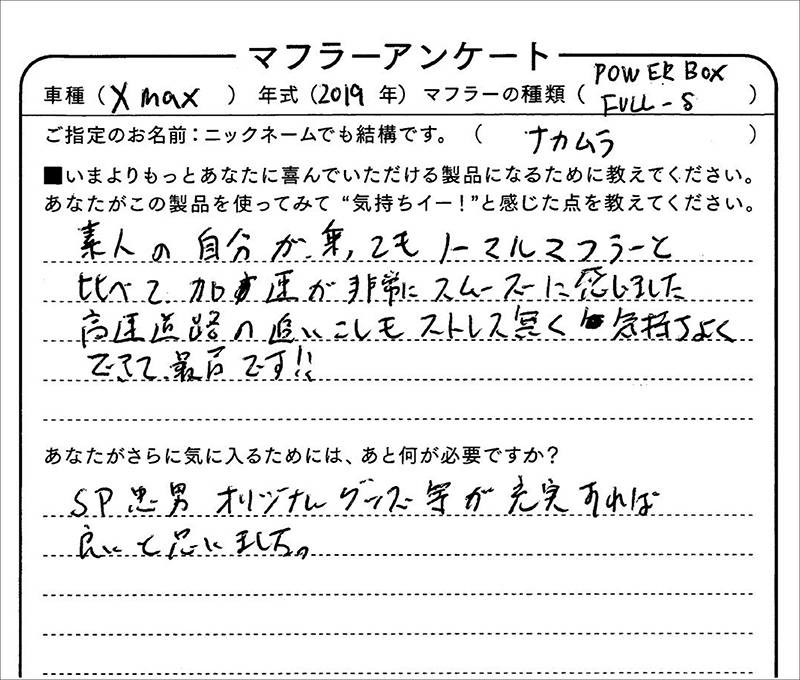 マフラーアンケート
車種（Xmax ） 年式（2019 年） マフラーの種類（POWER BOX FULL-S ）
ご指定のお名前：ニックネームでも結構です。（ ナカムラ ）
■いまよりもっとあなたに喜んでいただける製品になるために教えてください。
あなたがこの製品を使ってみて“気持ちイー！”と感じた点を教えてください。
素人の自分が乗ってもノーマルマフラーと
比べて加速が非常にスムーズに感じました
高速道路の追いこしもストレス無く気持ちよく
できて、最高です!!
あなたがさらに気に入るためには、あと何が必要ですか？
SP忠男オリジナルグッズ等が充実すれば
良いと思いました。